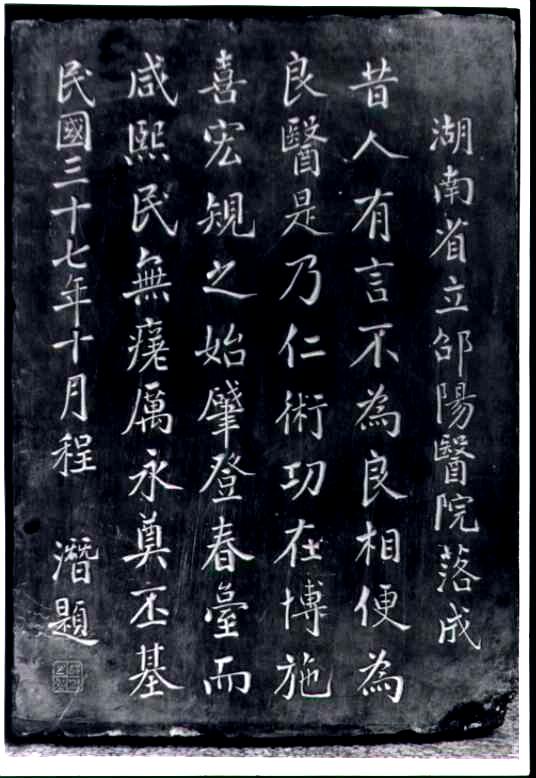 湖南省立邵陽醫院落成
昔人有言不為良相便為
良醫是乃仁術功在博施
喜宏規之始肇登春臺而
咸熙民無厲永奠丕基
民國三十七年十月程 潛題